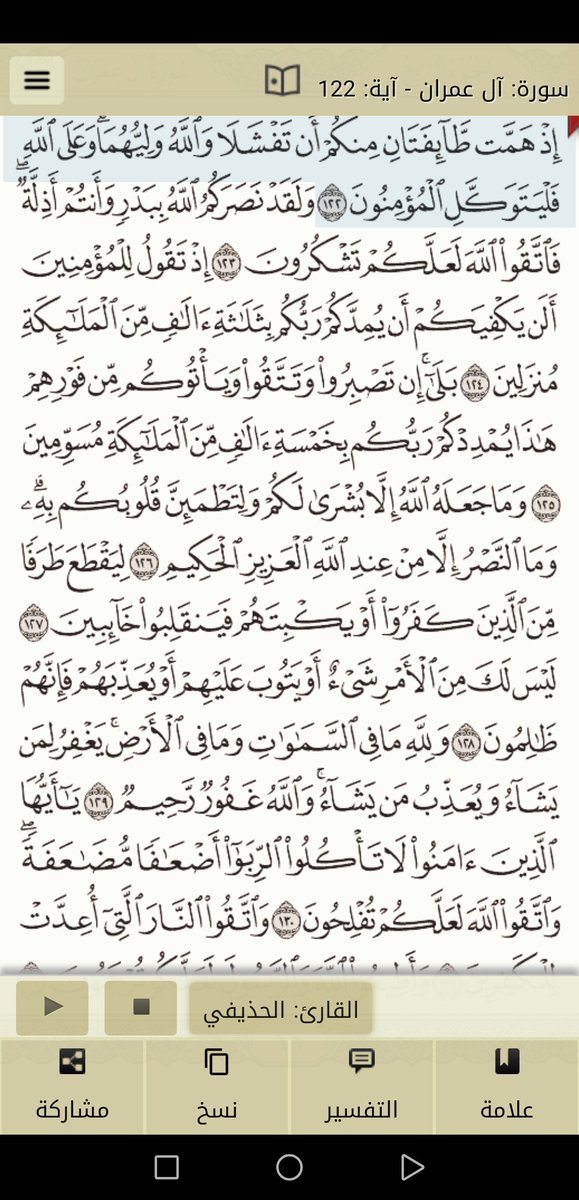 سورة: آل عمران - آية: 122
إِذْ هَمَّت طَّآئِفَتَانِ مِنكُمْ أَن تَفْشَلَا وَٱللَّهُ وَلِيُّهُمَا ۗ وَعَلَى ٱللَّهِ
فَلْيَتَوَكَّلِ ٱلْمُؤْمِنُونَ ١٢٢ وَلَقَدْ نَصَرَكُمُ ٱللَّهُ بِبَدْرٍ وَأَنتُمْ أَذِلَّةٌ ۖ
فَٱتَّقُوا۟ ٱللَّهَ لَعَلَّكُمْ تَشْكُرُونَ ١٢٣ إِذْ تَقُولُ لِلْمُؤْمِنِينَ
أَلَن يَكْفِيَكُمْ أَن يُمِدَّكُمْ رَبُّكُم بِثَلَـٰثَةِ ءَالَـٰفٍ مِّنَ ٱلْمَلَـٰٓئِكَةِ
مُنزَلِينَ ١٢٤ بَلَىٰٓ ۚ إِن تَصْبِرُوا۟ وَتَتَّقُوا۟ وَيَأْتُوكُم مِّن فَوْرِهِمْ
هَـٰذَا يُمْدِدْكُمْ رَبُّكُم بِخَمْسَةِ ءَالَـٰفٍ مِّنَ ٱلْمَلَـٰٓئِكَةِ مُسَوِّمِينَ
١٢٥ وَمَا جَعَلَهُ ٱللَّهُ إِلَّا بُشْرَىٰ لَكُمْ وَلِتَطْمَئِنَّ قُلُوبُكُم بِهِۦ ۗ
وَمَا ٱلنَّصْرُ إِلَّا مِنْ عِندِ ٱللَّهِ ٱلْعَزِيزِ ٱلْحَكِيمِ ١٢٦ لِيَقْطَعَ طَرَفًا
مِّنَ ٱلَّذِينَ كَفَرُوٓا۟ أَوْ يَكْبِتَهُمْ فَيَنقَلِبُوا۟ خَآئِبِينَ ١٢٧
لَيْسَ لَكَ مِنَ ٱلْأَمْرِ شَىْءٌ أَوْ يَتُوبَ عَلَيْهِمْ أَوْ يُعَذِّبَهُمْ فَإِنَّهُمْ
ظَـٰلِمُونَ ١٢٨ وَلِلَّهِ مَا فِى ٱلسَّمَـٰوَٰتِ وَمَا فِى ٱلْأَرْضِ ۚ يَغْفِرُ لِمَن
يَشَآءُ وَيُعَذِّبُ مَن يَشَآءُ ۚ وَٱللَّهُ غَفُورٌ رَّحِيمٌ ١٢٩ يَـٰٓأَيُّهَا
ٱلَّذِينَ ءَامَنُوا۟ لَا تَأْكُلُوا۟ ٱلرِّبَوٰٓا۟ أَضْعَـٰفًا مُّضَـٰعَفَةً ۖ
وَٱتَّقُوا۟ ٱللَّهَ لَعَلَّكُمْ تُفْلِحُونَ ١٣٠ وَٱتَّقُوا۟ ٱلنَّارَ ٱلَّتِىٓ أُعِدَّتْ
القارئ: الحذيفي
علامة
التفسير
نسخ
مشاركة